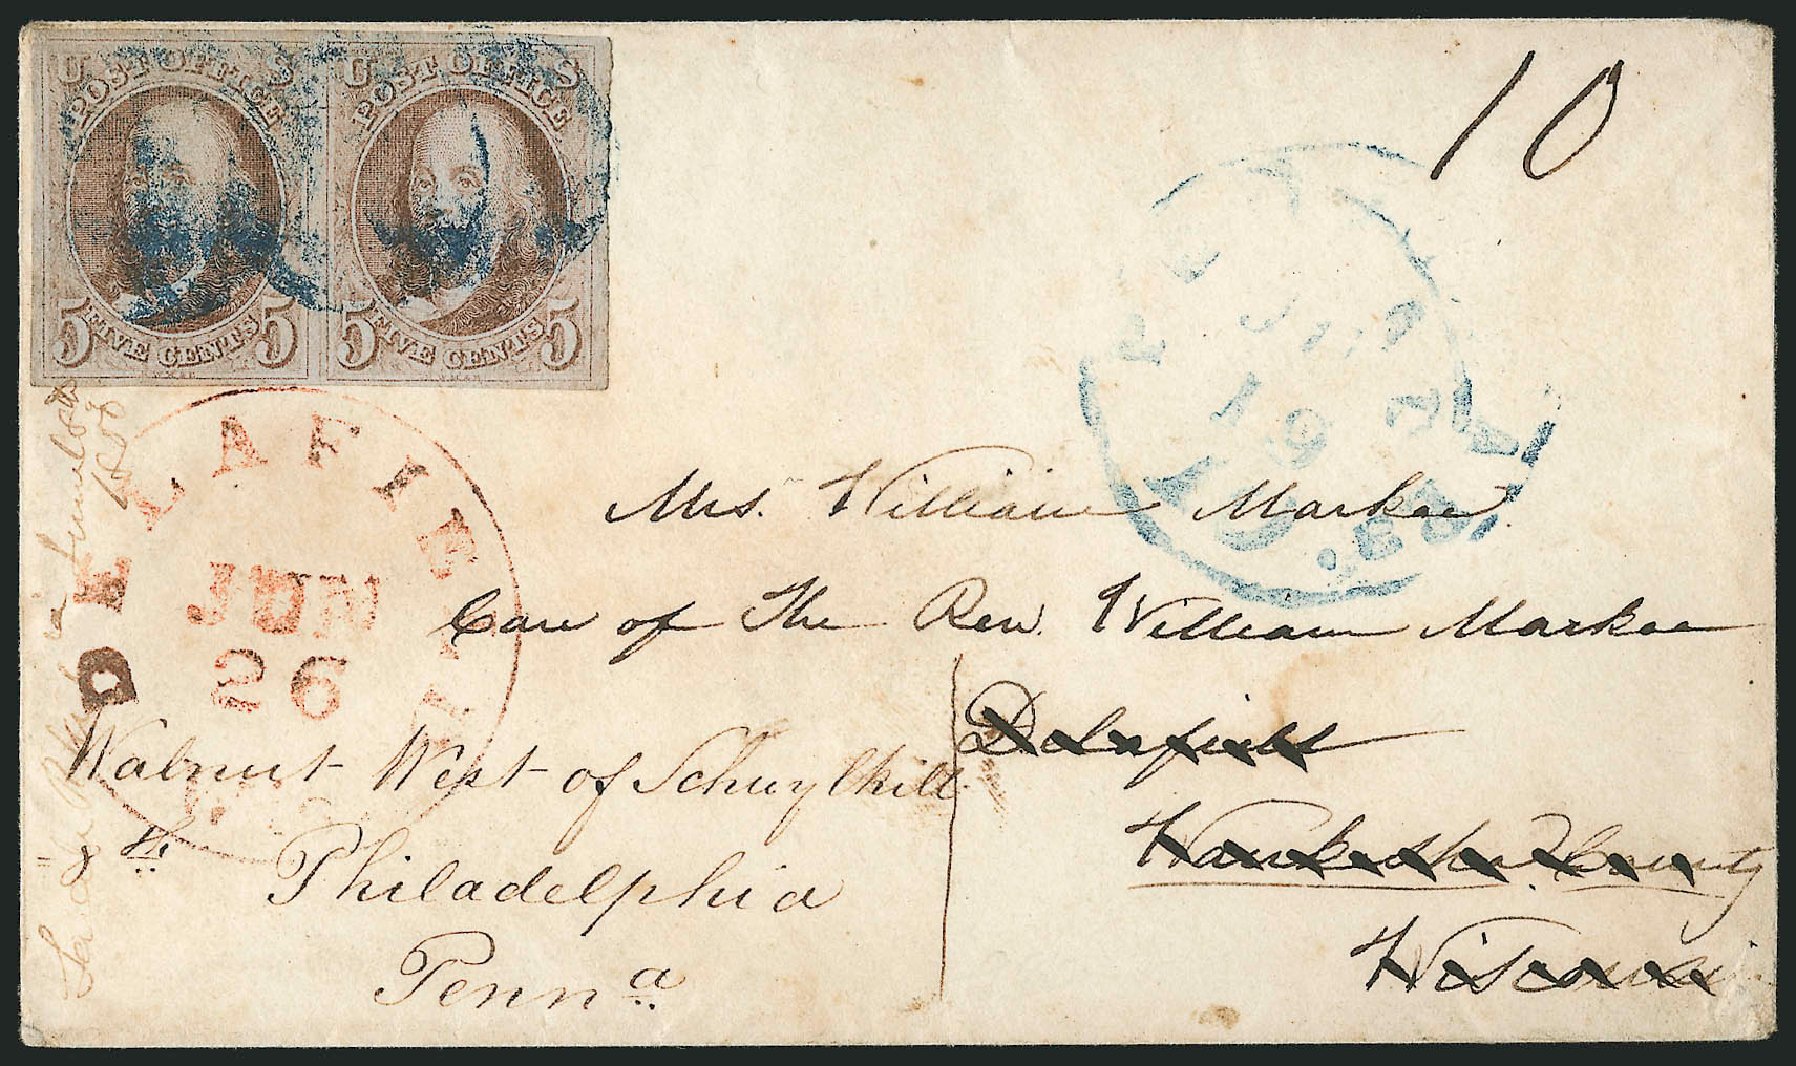 U S U S
POST OFFICE POST OFFICE
5 FIVE CENTS 5 5 FIVE CENTS 5
10
JUN
19
10 Cts.
DELAFIELD
JUN
26
Mrs. William Markoe
Care of The Rev. William Markoe
Delafield
Waukesha County
Wisconsin
Walnut West of Schuylkill
8th
Philadelphia
Penna